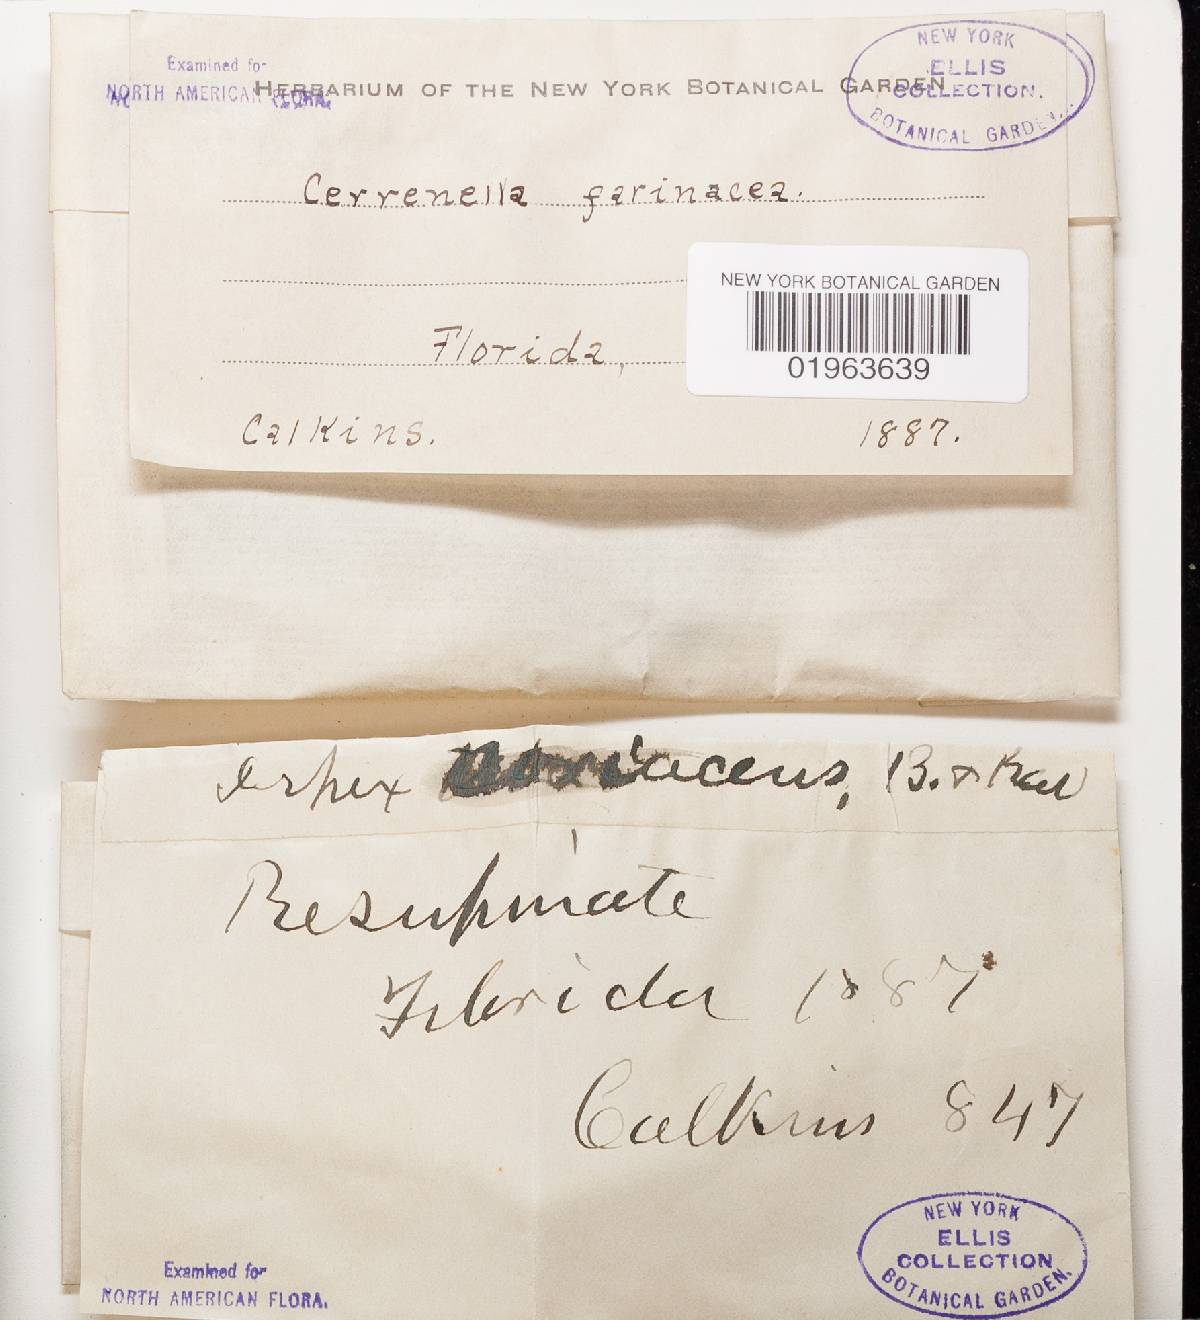 Examined for
NORTH AMERICAN FLORA.
HERBARIUM OF THE NEW YORK BOTANICAL GARDEN
NEW YORK
ELLIS
COLLECTION.
BOTANICAL GARDEN.
Cerrenella farinacea.
NEW YORK BOTANICAL GARDEN
01963639
Florida,
Calkins. 1887.
Irpex coriaceus, B. & Rav
Resupinate
Florida 1887
Calkins 847
NEW YORK
ELLIS
COLLECTION
BOTANICAL GARDEN.
Examined for
NORTH AMERICAN FLORA.